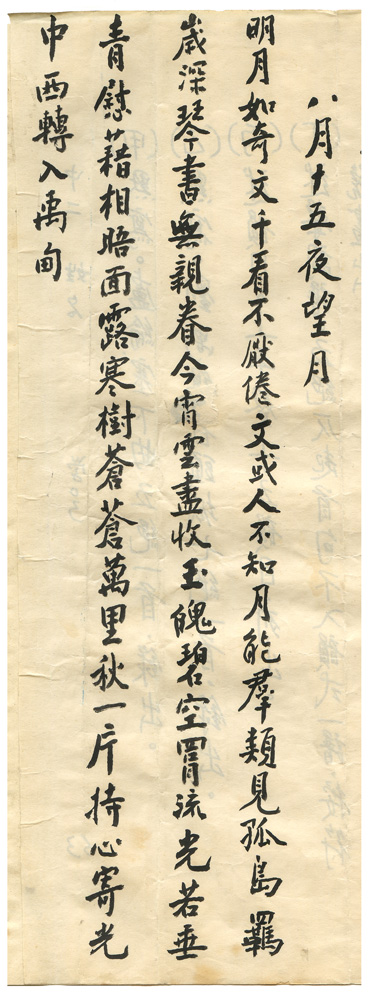 八月十五夜望月
明月如奇文千看不厭倦文或人不知月能羣類見孤島羈
歲深琴書無親眷今宵雲盡收玉魄碧空罥流光若垂
青慰藉相晤面露寒樹蒼蒼萬里秋一片持心寄光
中西轉入禹甸